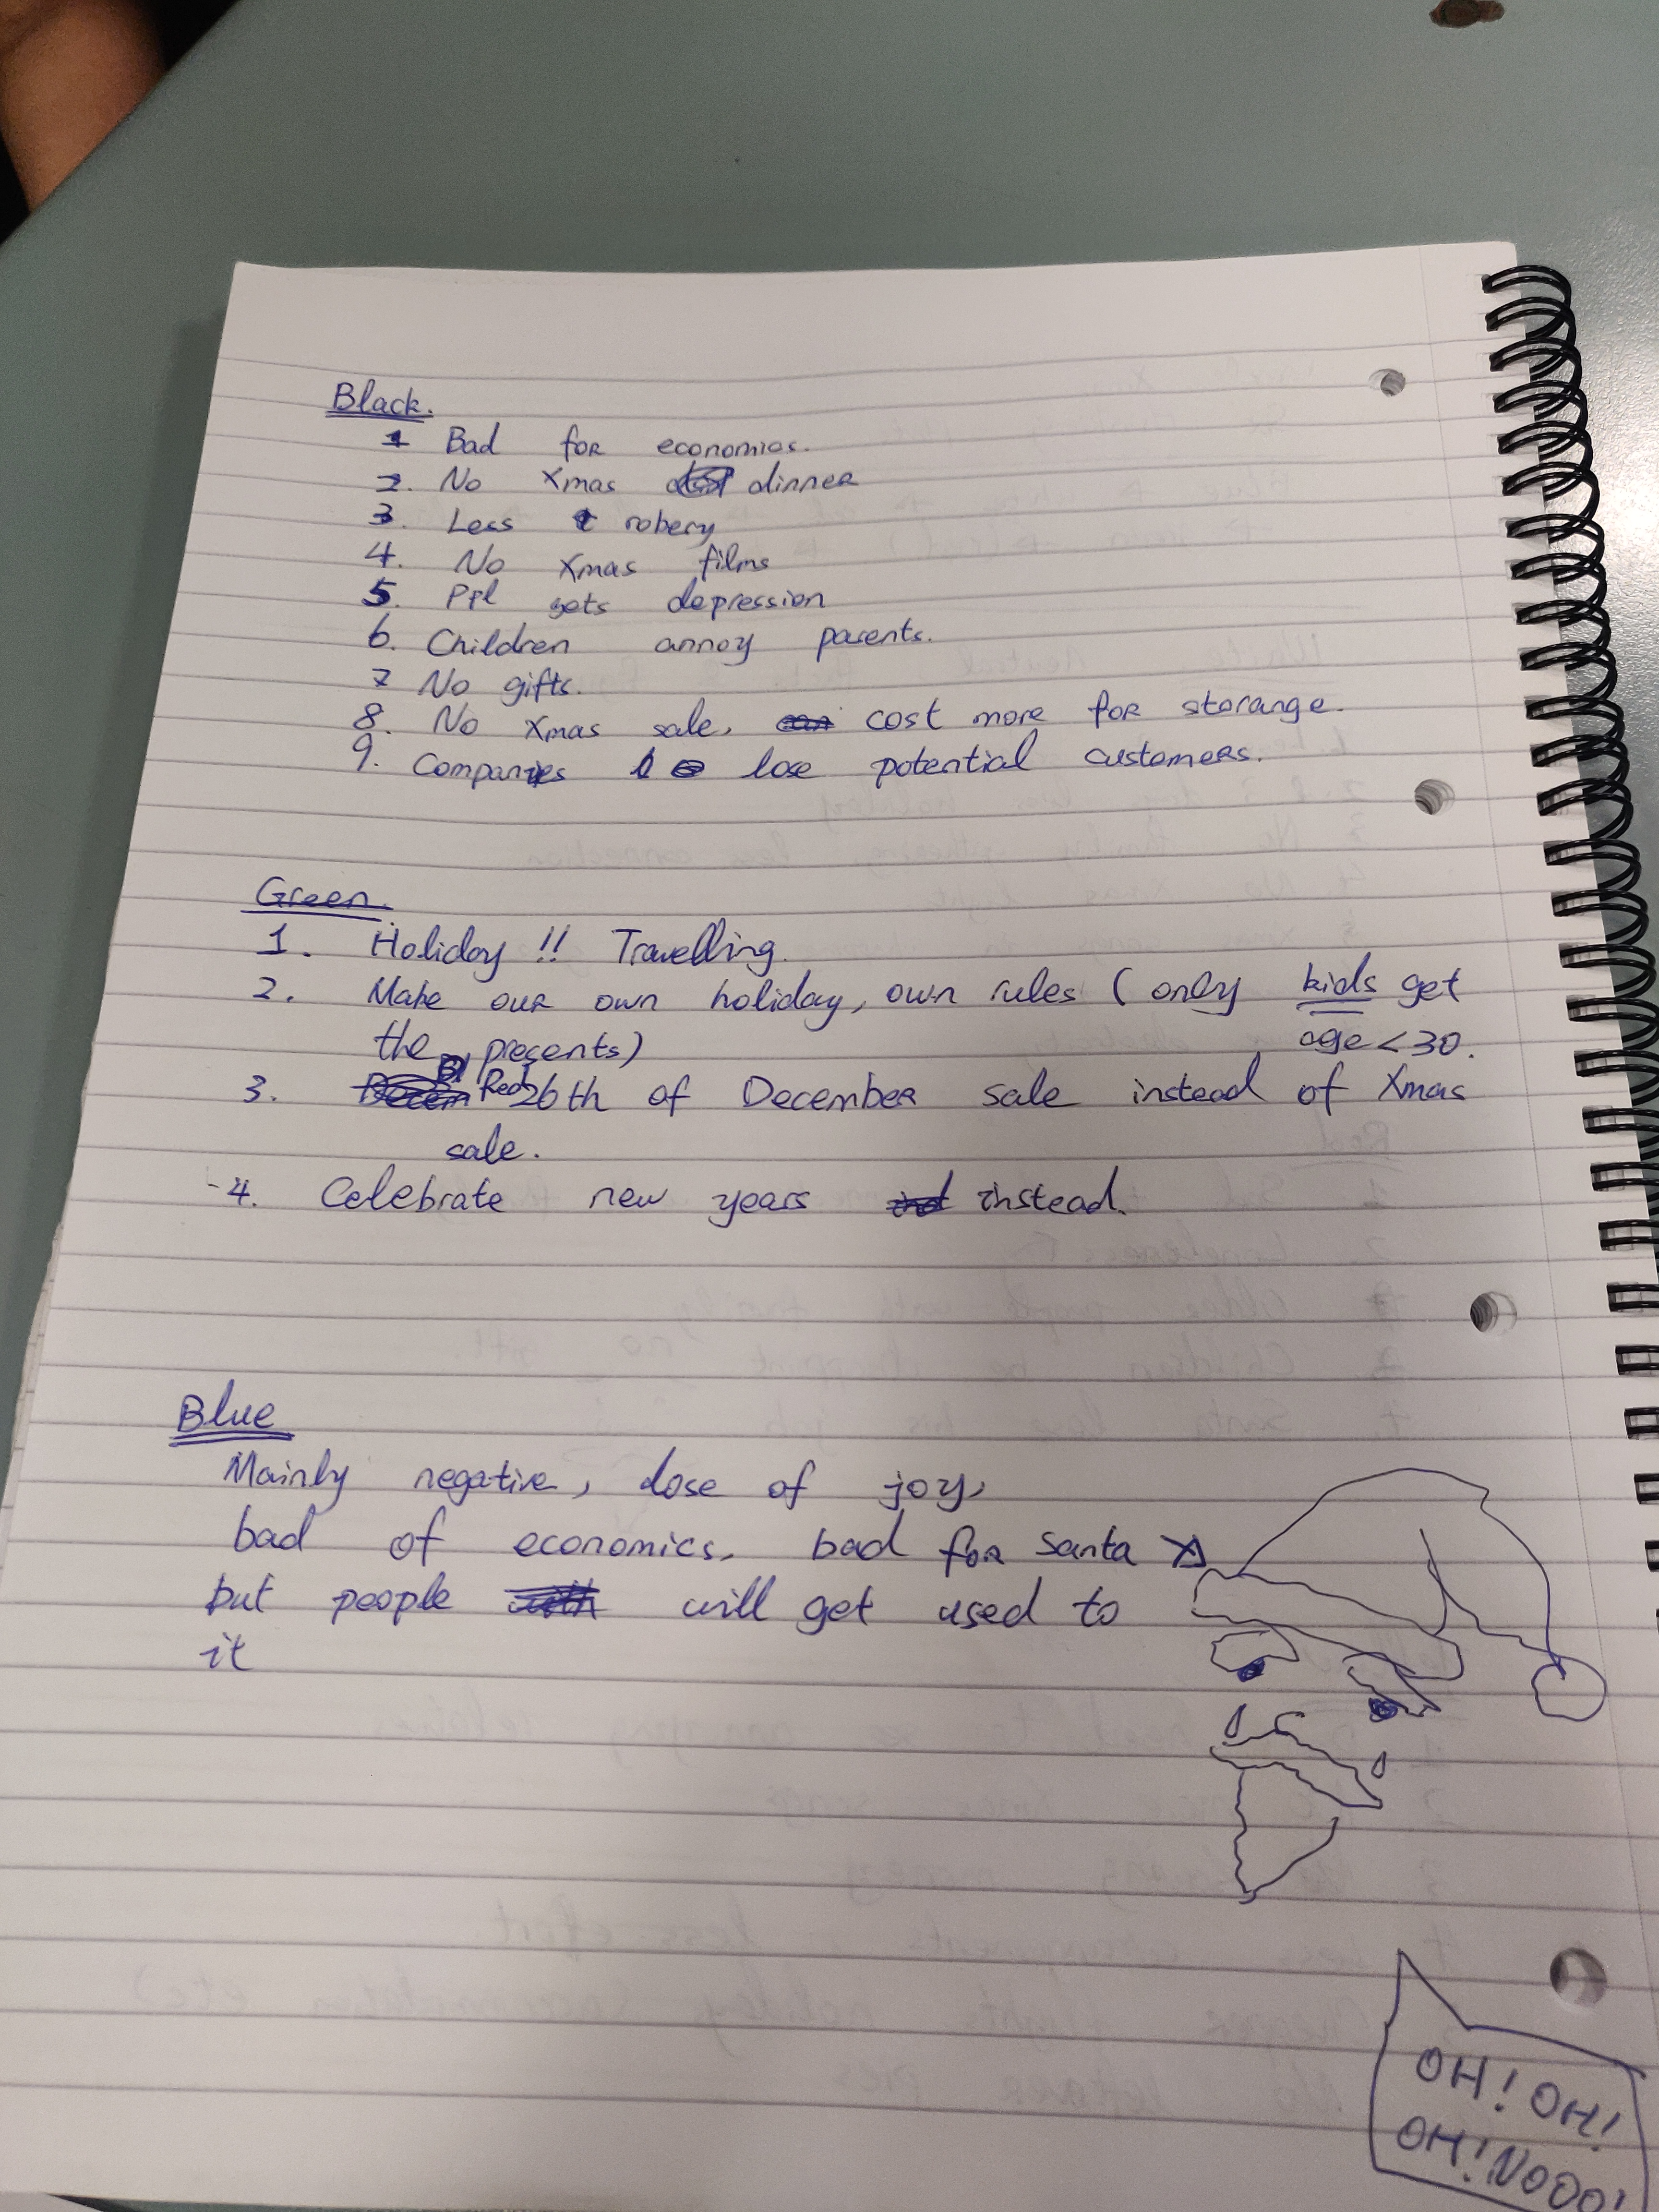 Black.
1 Bad for economics.
2. No Xmas dinner
3. Less robery
4. No Xmas films
5. Ppl gets depression
6. Children annoy parents.
7 No gifts.
8. No Xmas sale, cost more for storange.
9. Companies lose potential customers.
Green.
1. Holiday !! Travelling.
2. Make our own holiday, own rules ( only kids get
the presents)
age < 30.
3. Red 26th of December sale instead of Xmas
sale.
-4. Celebrate new years instead.
Blue
Mainly negative, lose of joy,
bad of economics. bad for santa
but people will get used to
it
OH! OH!
OH! NOOO!